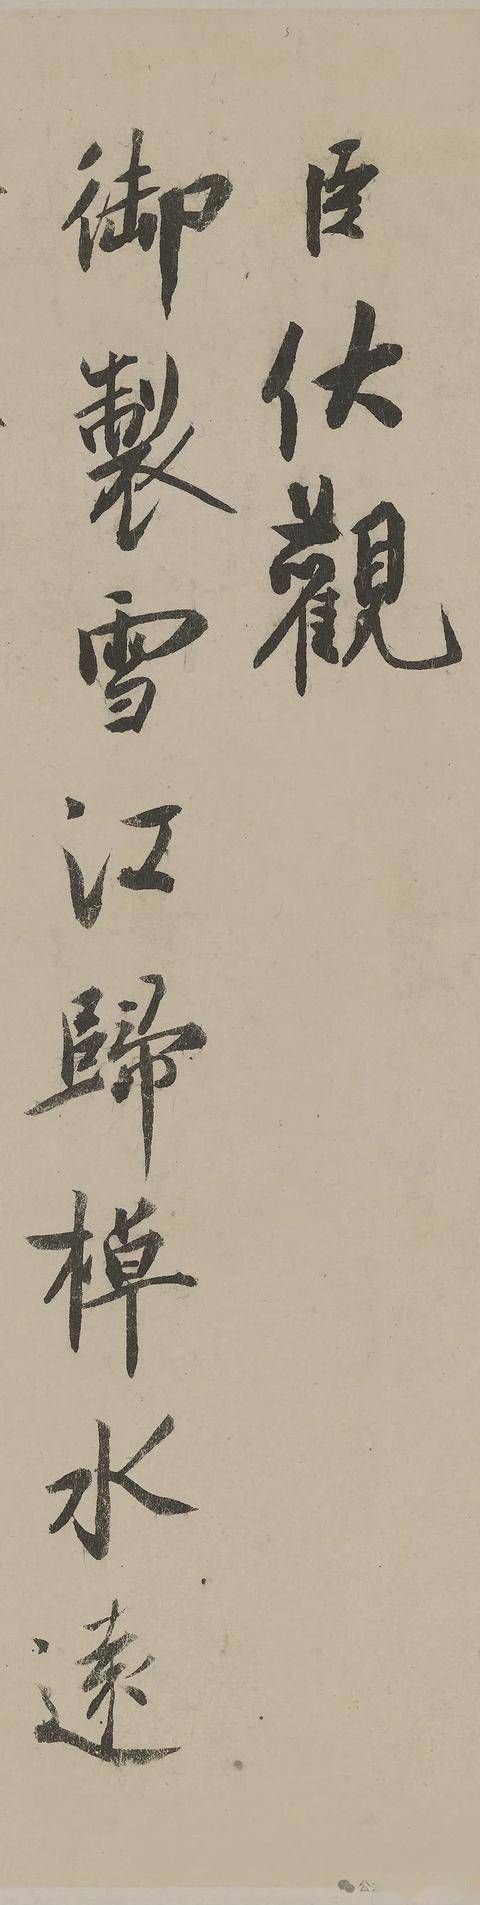 臣伏觀
御製雪江歸棹水遠
公